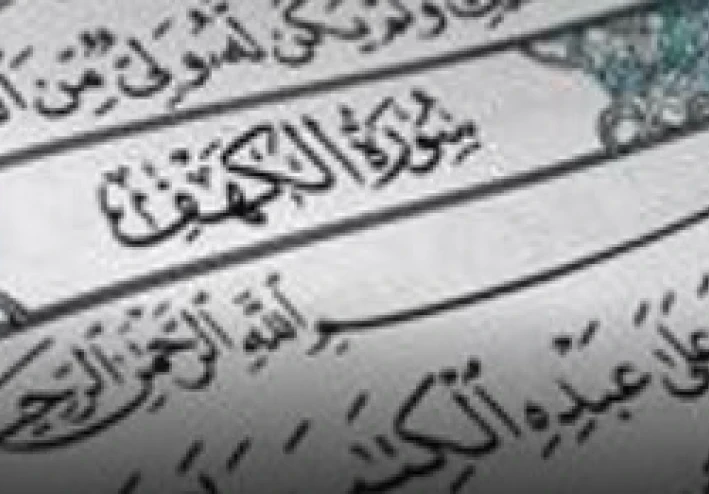 وَلَمْ يَكُن لَّهُۥ وَلِىٌّ مِّنَ
سُورَةُ الكَهْفِ
بِسْمِ ٱللَّهِ ٱلرَّحْمَٰنِ ٱلرَّحِيمِ
عَلَىٰ عَبْدِهِ ٱلْكِتَٰبَ